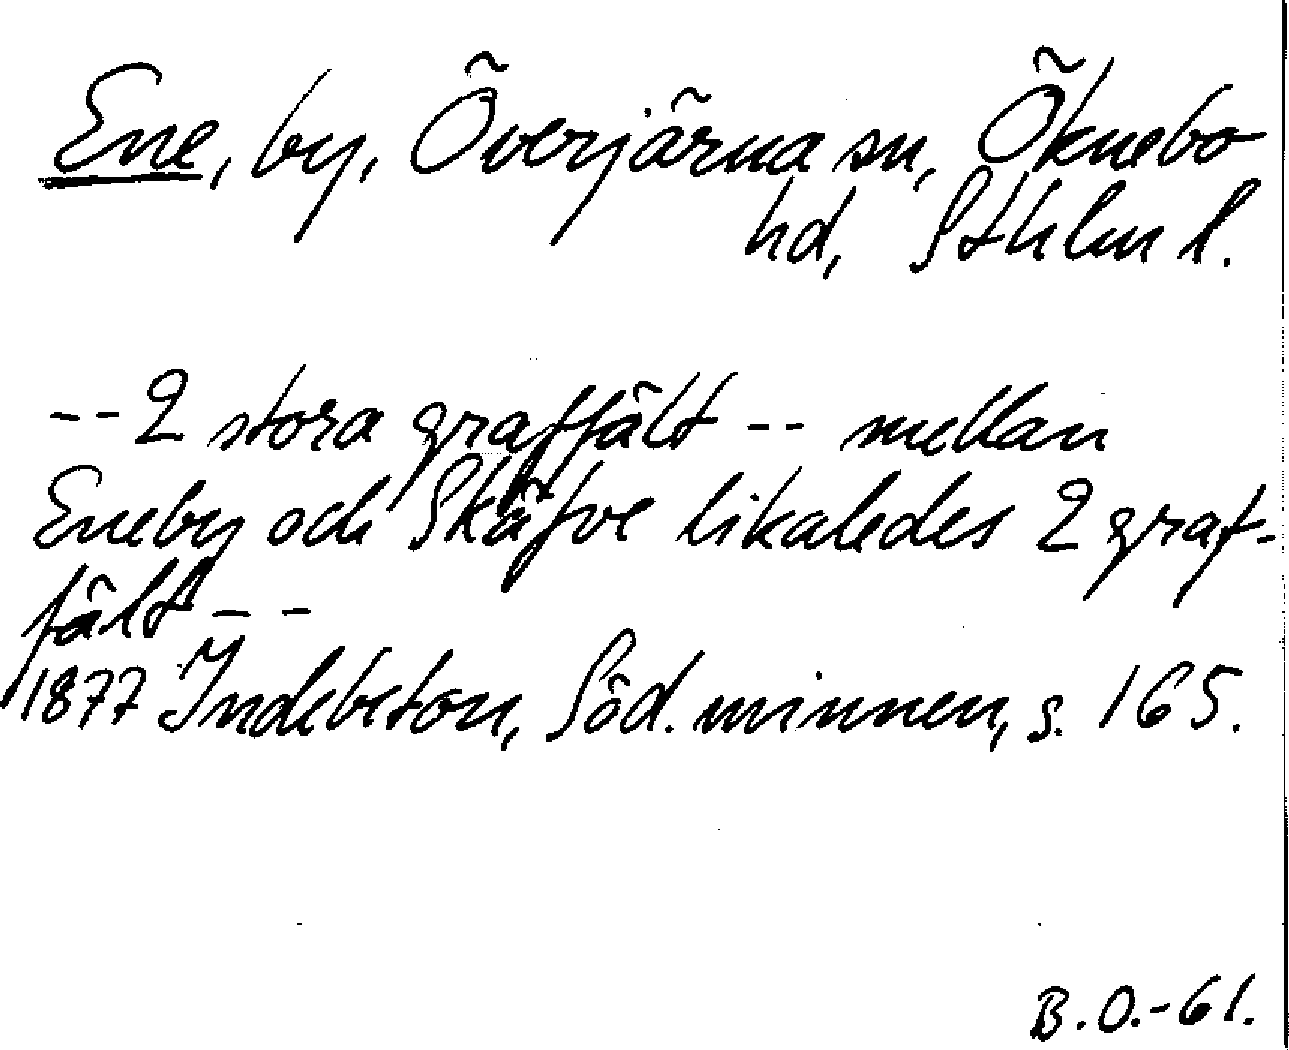 Ene, by, Överjärna sn, Öknebo
hd, Sthlm l.
-- 2 stora graffält -- mellan
Eneby och Skäfve likaledes 2 graf-
fält --
1877 Indebetou, Söd. minnen, s. 165.
B.O.-61.